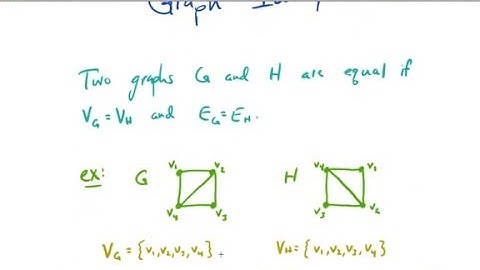 Graph
Two graphs G and H are equal if
V_G = V_H and E_G = E_H.
ex: G H
v₁ v₂ v₄ v₁
v₄ v₃ v₃ v₂
V_G = {v₁, v₂, v₃, v₄} , V_H = {v₁, v₂, v₃, v₄}